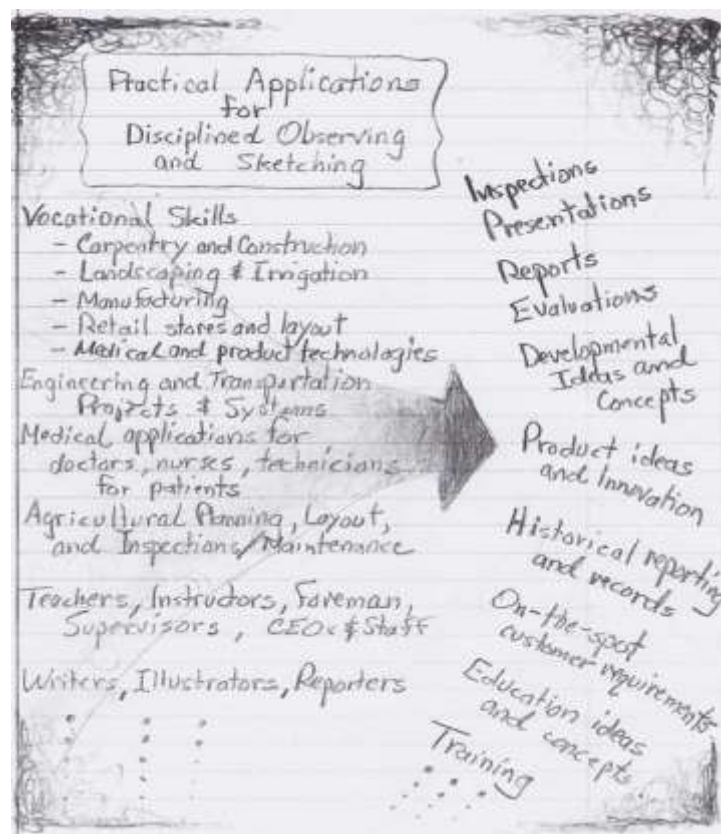 Practical Applications
for
Disciplined Observing
and Sketching
Vocational Skills
- Carpentry and Construction
- Landscaping & Irrigation
- Manufacturing
- Retail stores and layout
- Medical and product technologies
Engineering and Transportation
Projects & Systems
Medical applications for
doctors, nurses, technicians
for patients
Agricultural Planning, Layout,
and Inspections/Maintenance
Teachers, Instructors, Foreman,
Supervisors, CEOs & Staff
Writers, Illustrators, Reporters
Inspections
Presentations
Reports
Evaluations
Developmental
Ideas and
Concepts
Product ideas
and Innovation
Historical reporting
and records
On-the-spot
customer requirements
Education ideas
and concepts
Training